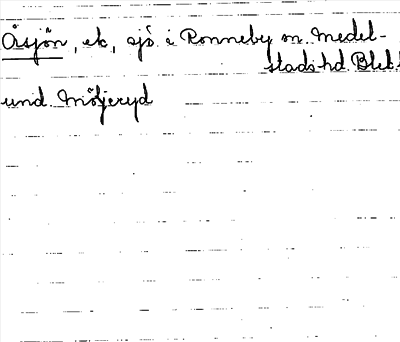 Årsjön, ek, sjö i Ronneby sn. Medel-
stads hd. Blek.
und. Möljeryd